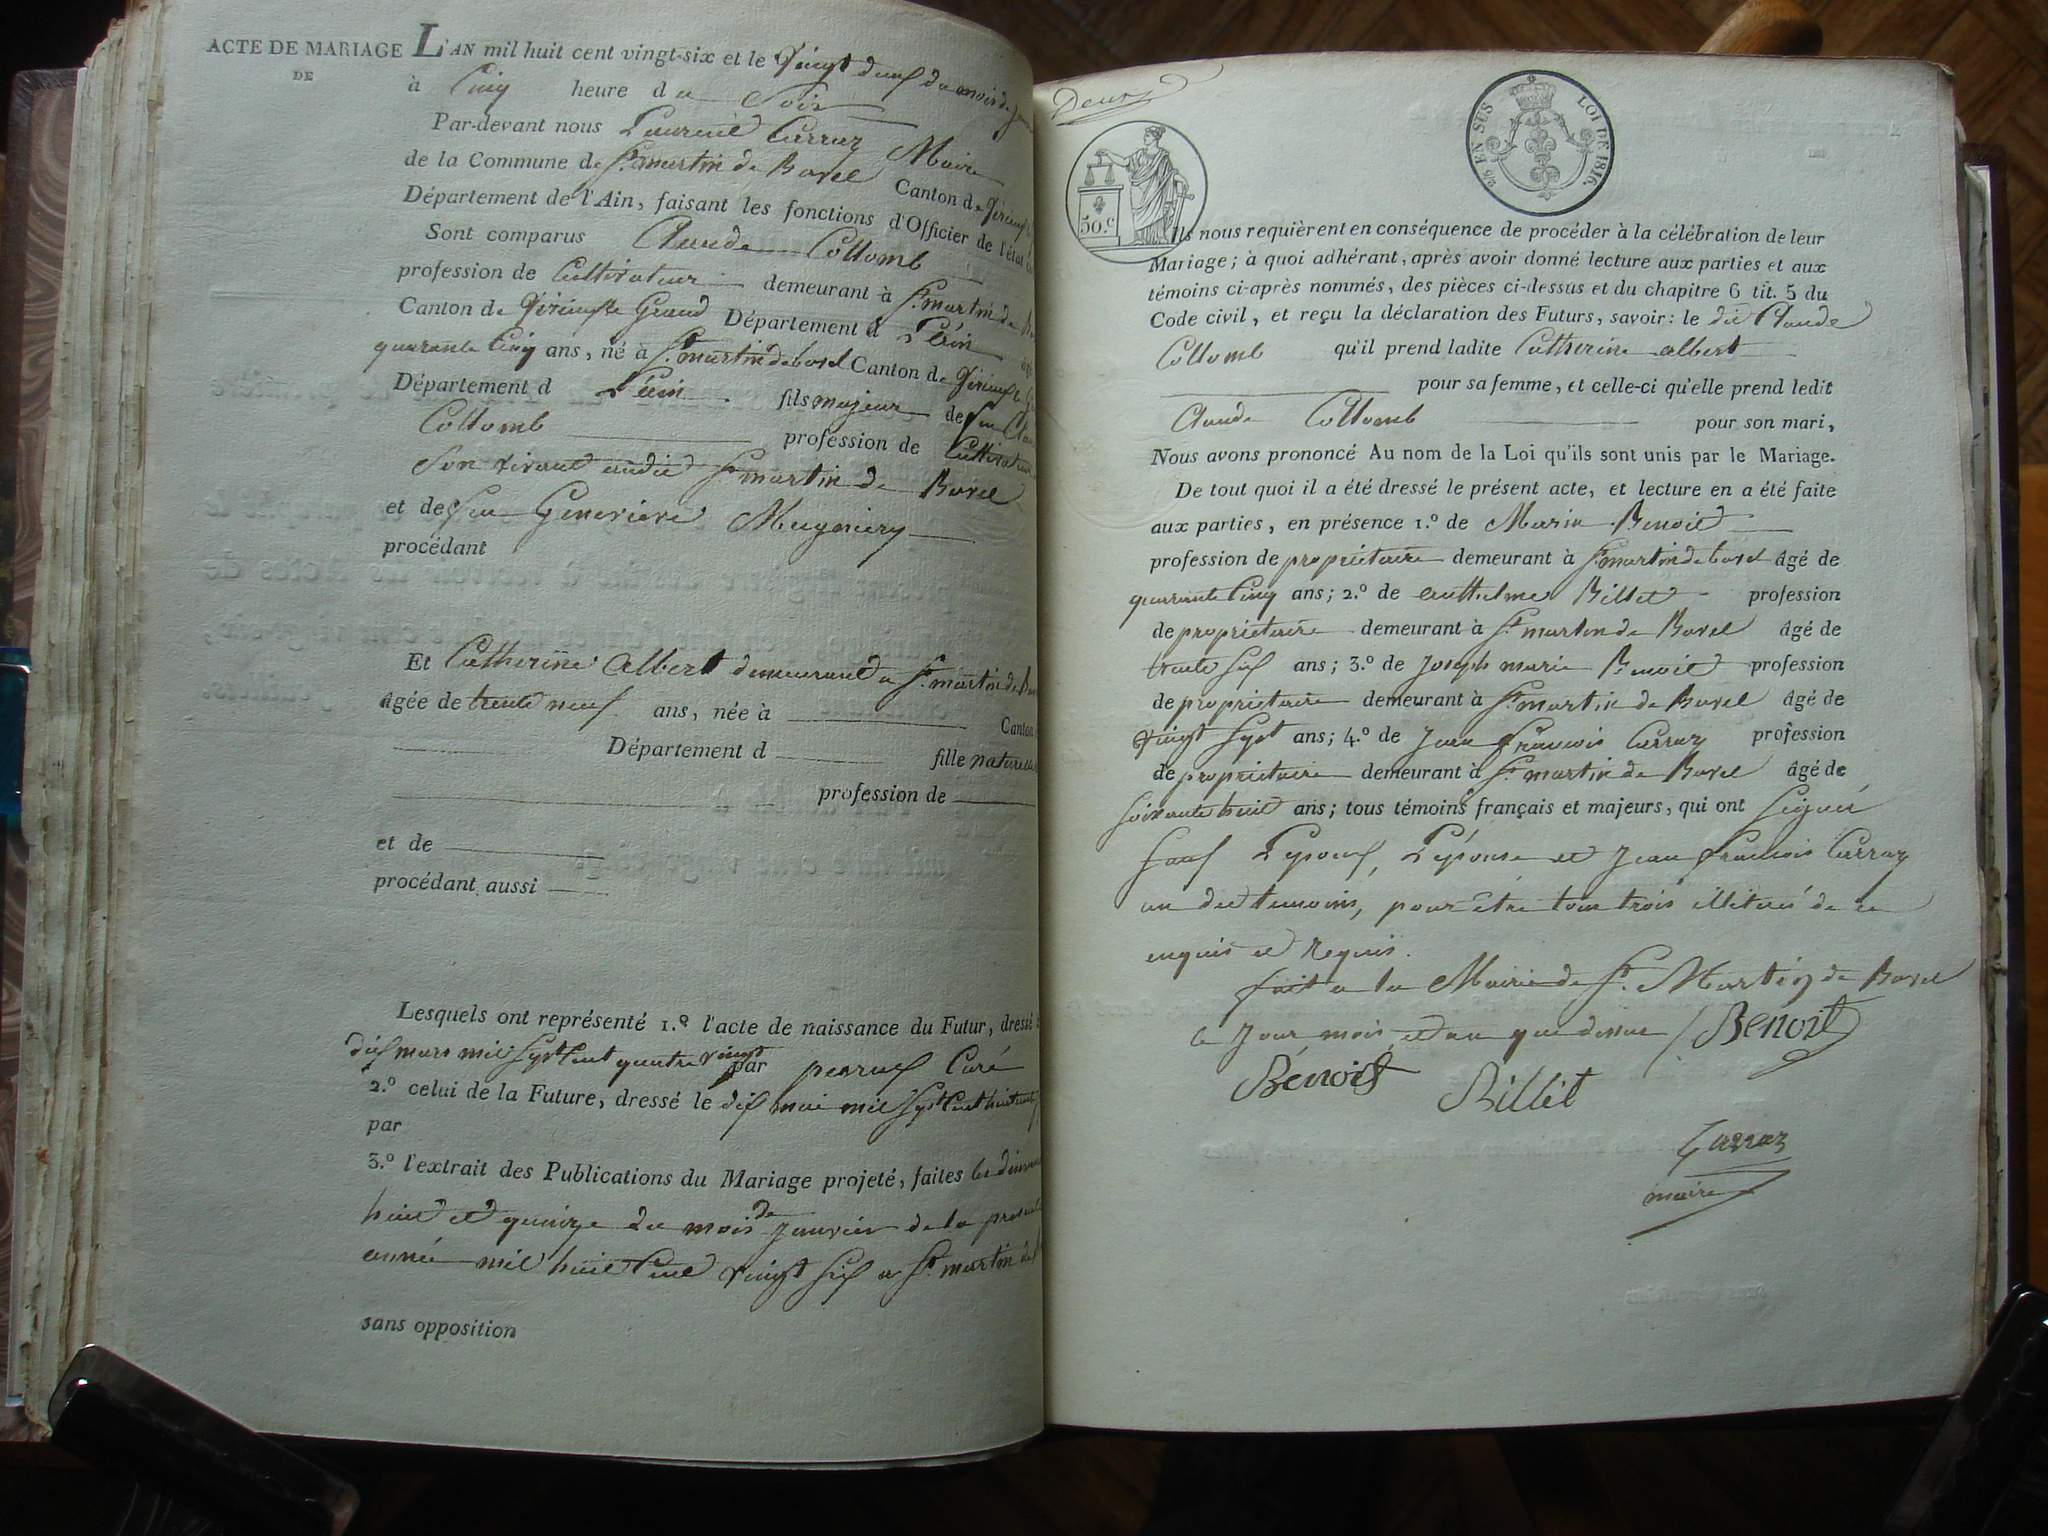 ACTE DE MARIAGE L'AN mil huit cent vingt-six et le Vingt deux du mois de
DE
à Cinq heure du Soir
Par-devant nous Laurent Carraz Maire
de la Commune de St. martin de Bavel Canton de
Département de l'Ain, faisant les fonctions d'Officier de l'état
Sont comparus Claude Collomb
profession de Cultivateur demeurant à St. martin de
Canton de Virieu le Grand Département d L'ain
quarante Cinq ans, né à St. martin de bavel Canton de Virieu le
Département d L'ain fils majeur de feu
Collomb profession de Cultivateur
Son vivant audit St. martin de Bavel
et de feu Genevieve Mugniery
procédant
Et Catherine Albert demeurant a St. martin de
âgée de trente neuf ans, née à Canton
Département d fille naturelle
profession de
et de
procédant aussi
Lesquels ont représenté 1.º l'acte de naissance du Futur, dressé
dix mars mil Sept Cent quatre vingt par perruf Curé
2.º celui de la Future, dressé le dix mai mil Sept Cent
par
3.º l'extrait des Publications du Mariage projeté, faites les
huit et quinze du mois de Janvier de la
année mil huit Cent vingt Six a St. martin de
sans opposition
Deux
2/5 EN SUS LOI DE 1816.
50.c
Ils nous requièrent en conséquence de procéder à la célébration de leur
Mariage; à quoi adhérant, après avoir donné lecture aux parties et aux
témoins ci-après nommés, des pièces ci-dessus et du chapitre 6 tit. 5 du
Code civil, et reçu la déclaration des Futurs, savoir: le dit Claude
Collomb qu'il prend ladite Catherine albert
pour sa femme, et celle-ci qu'elle prend ledit
Claude Collomb pour son mari,
Nous avons prononcé Au nom de la Loi qu'ils sont unis par le Mariage.
De tout quoi il a été dressé le présent acte, et lecture en a été faite
aux parties, en présence 1.º de Marin Benoit
profession de propriétaire demeurant à St. martin de bavel âgé de
quarante Cinq ans; 2.º de anthelme Billet profession
de propriétaire demeurant à St. martin de Bavel âgé de
trente Six ans; 3.º de Joseph marie Benoit profession
de propriétaire demeurant à St. martin de Bavel âgé de
vingt Sept ans; 4.º de Jean François Carraz profession
de propriétaire demeurant à St. martin de Bavel âgé de
Soixante huit ans; tous témoins français et majeurs, qui ont Signé
Sauf L'epoux, L'épouse et Jean François Carraz
un des temoins, pour être tous trois illiteré de ce
enquis et Requis.
fait a la Mairie de St. Martin de Bavel
le Jour, mois, et an que dessus Benoit
Benoit Billet
Carraz
maire